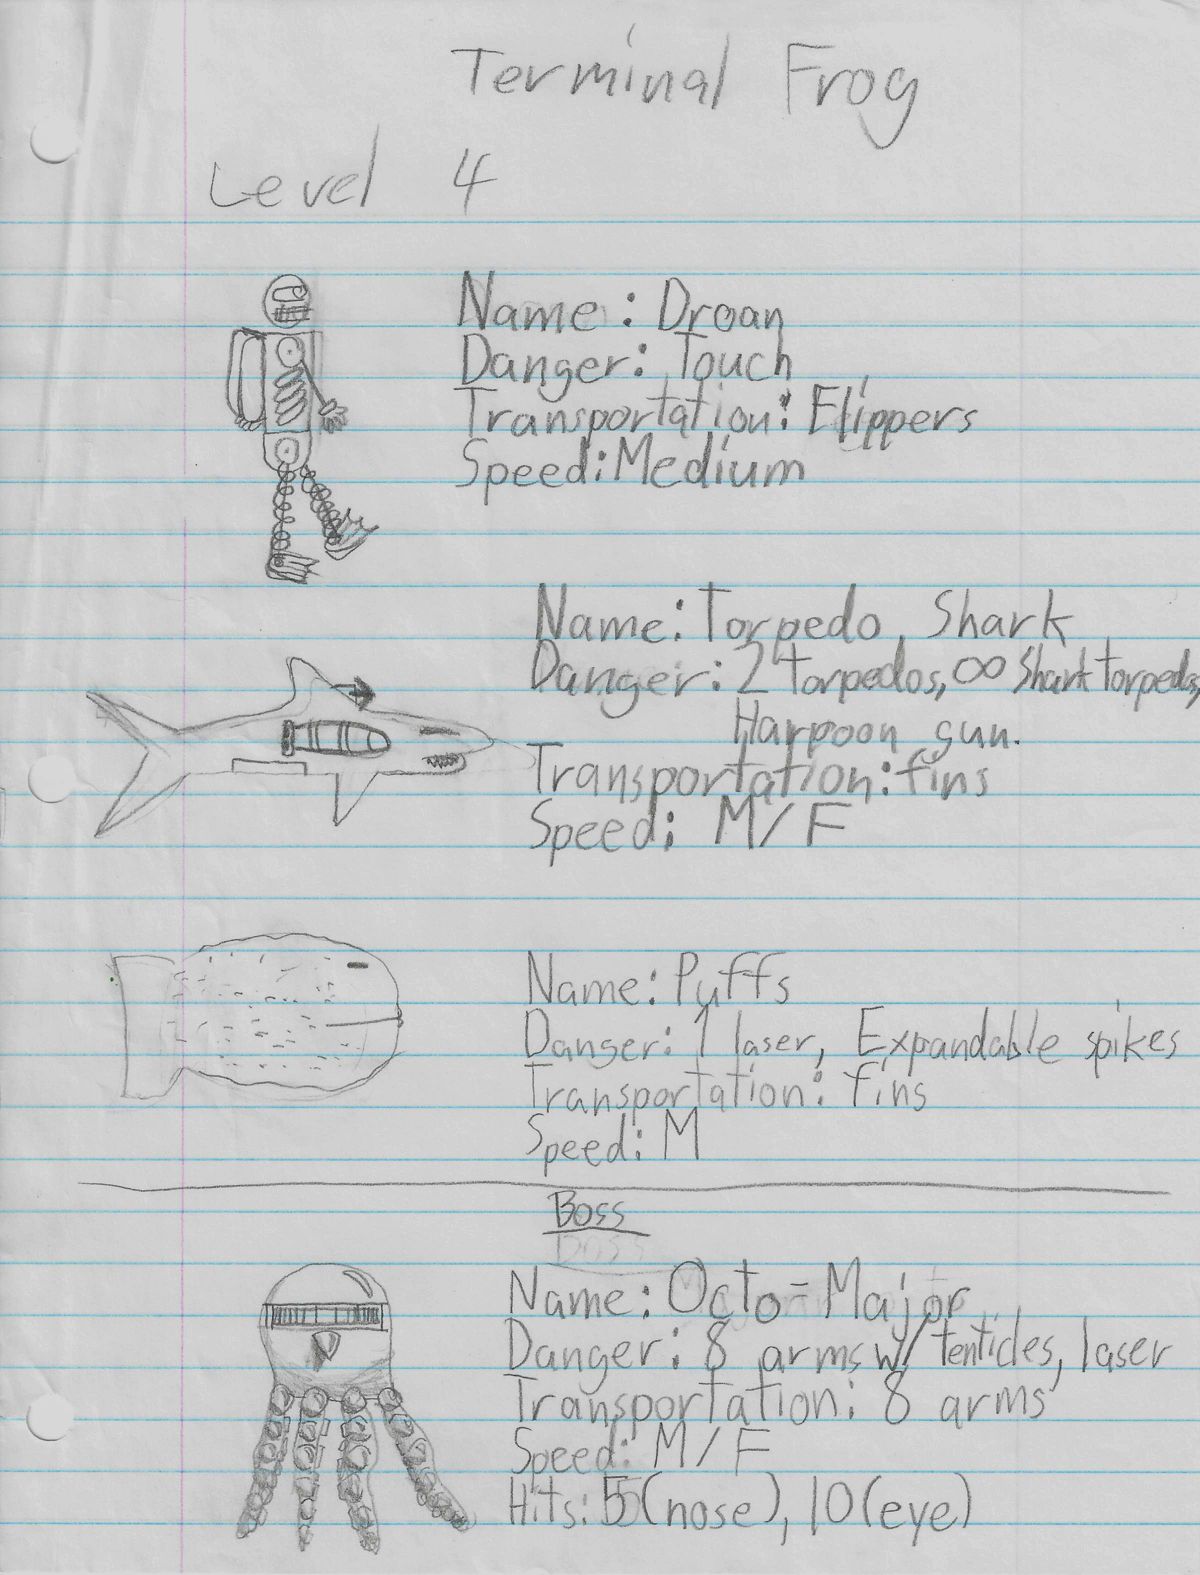 Terminal Frog
Level 4
Name: Droan
Danger: Touch
Transportation: Flippers
Speed: Medium
Name: Torpedo Shark
Danger: 2 torpedos, ∞ Shark torpedos,
Harpoon gun.
Transportation: fins
Speed: M/F
Name: Puffs
Danger: 1 laser, Expandable spikes
Transportation: fins
Speed: M
Boss
Name: Octo-Major
Danger: 8 arms w/ tenticles, laser
Transportation: 8 arms
Speed: M/F
Hits: 5(nose), 10(eye)